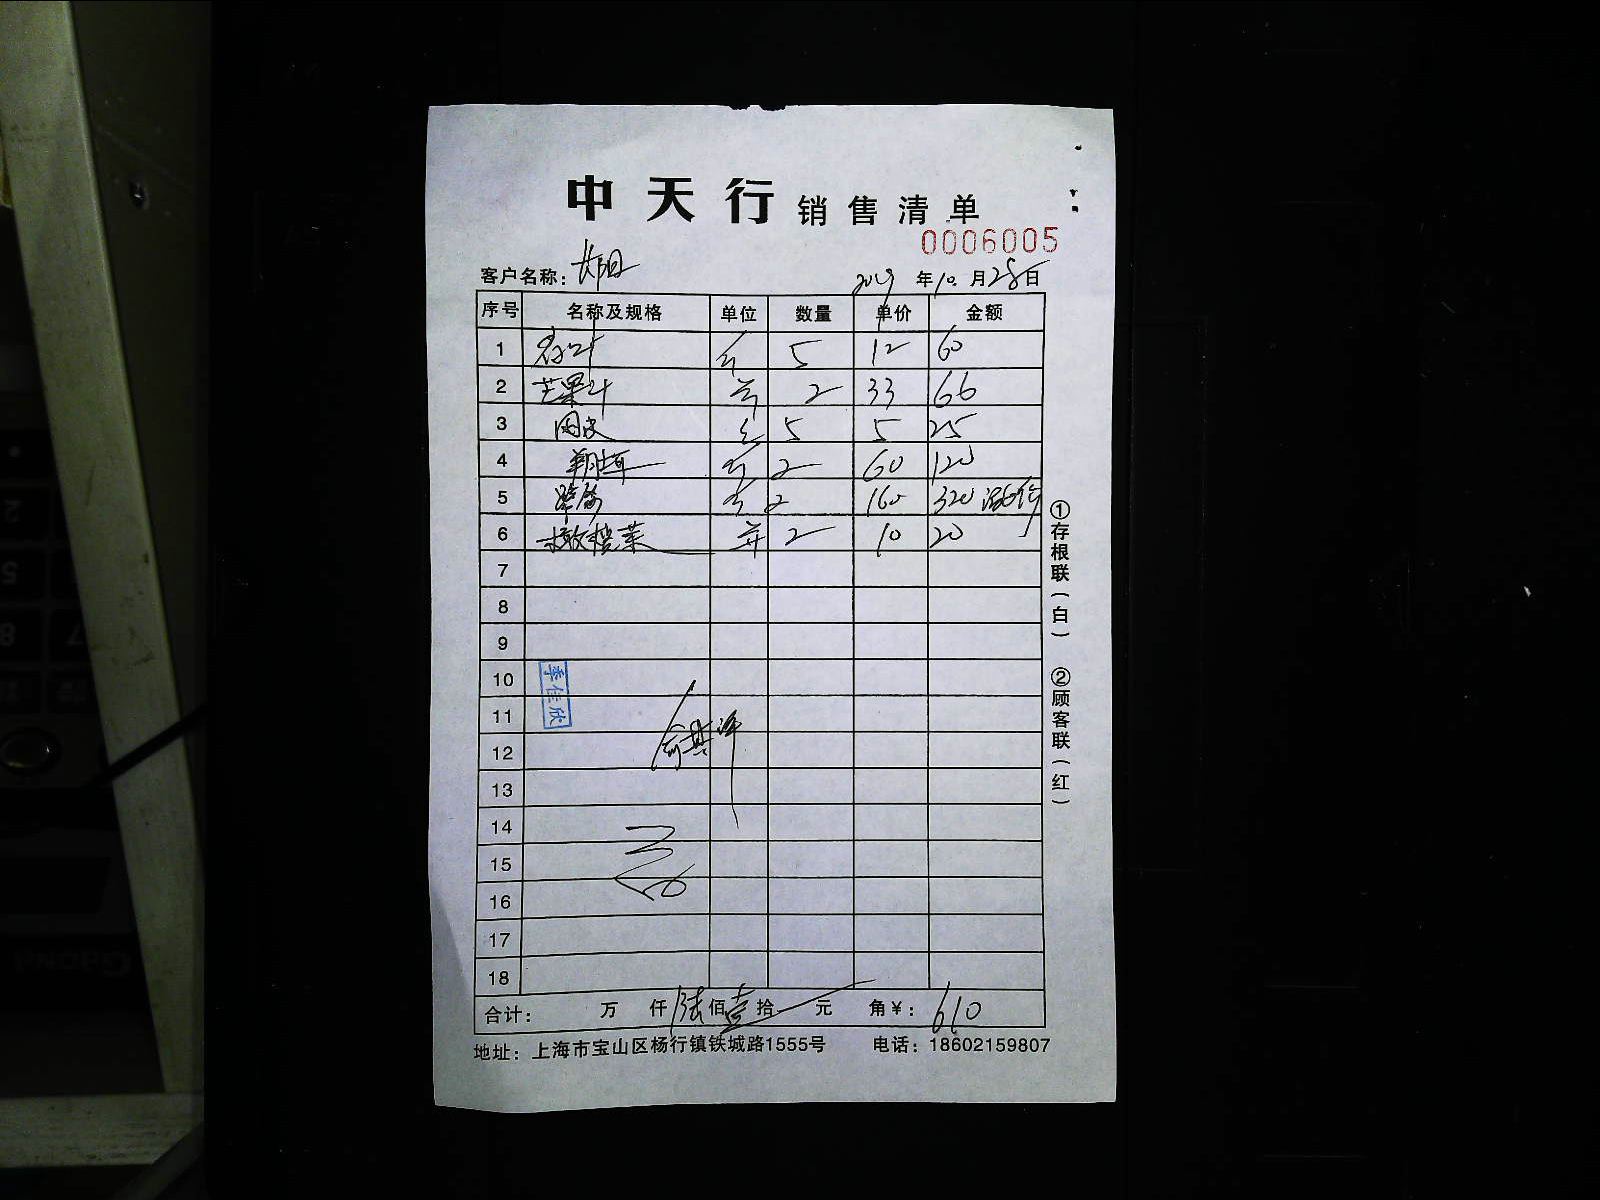 中天行 销售清单
0006005
客户名称： 2019 年 10. 月 28 日
序号 名称及规格 单位 数量 单价 金额
1 5 12 60
2 芒果汁 2 33 66
3 5 5 25
4 2 60 120
5 2 160 320 涨价
6 橄榄菜 2 10 20
7
8
9
10
季佳欣
11
12
13
14
15
16
17
18
合计： 万 仟 陆 佰 壹 拾 元 角￥： 610
地址：上海市宝山区杨行镇铁城路1555号 电话：18602159807
①存根联（白）
②顾客联（红）